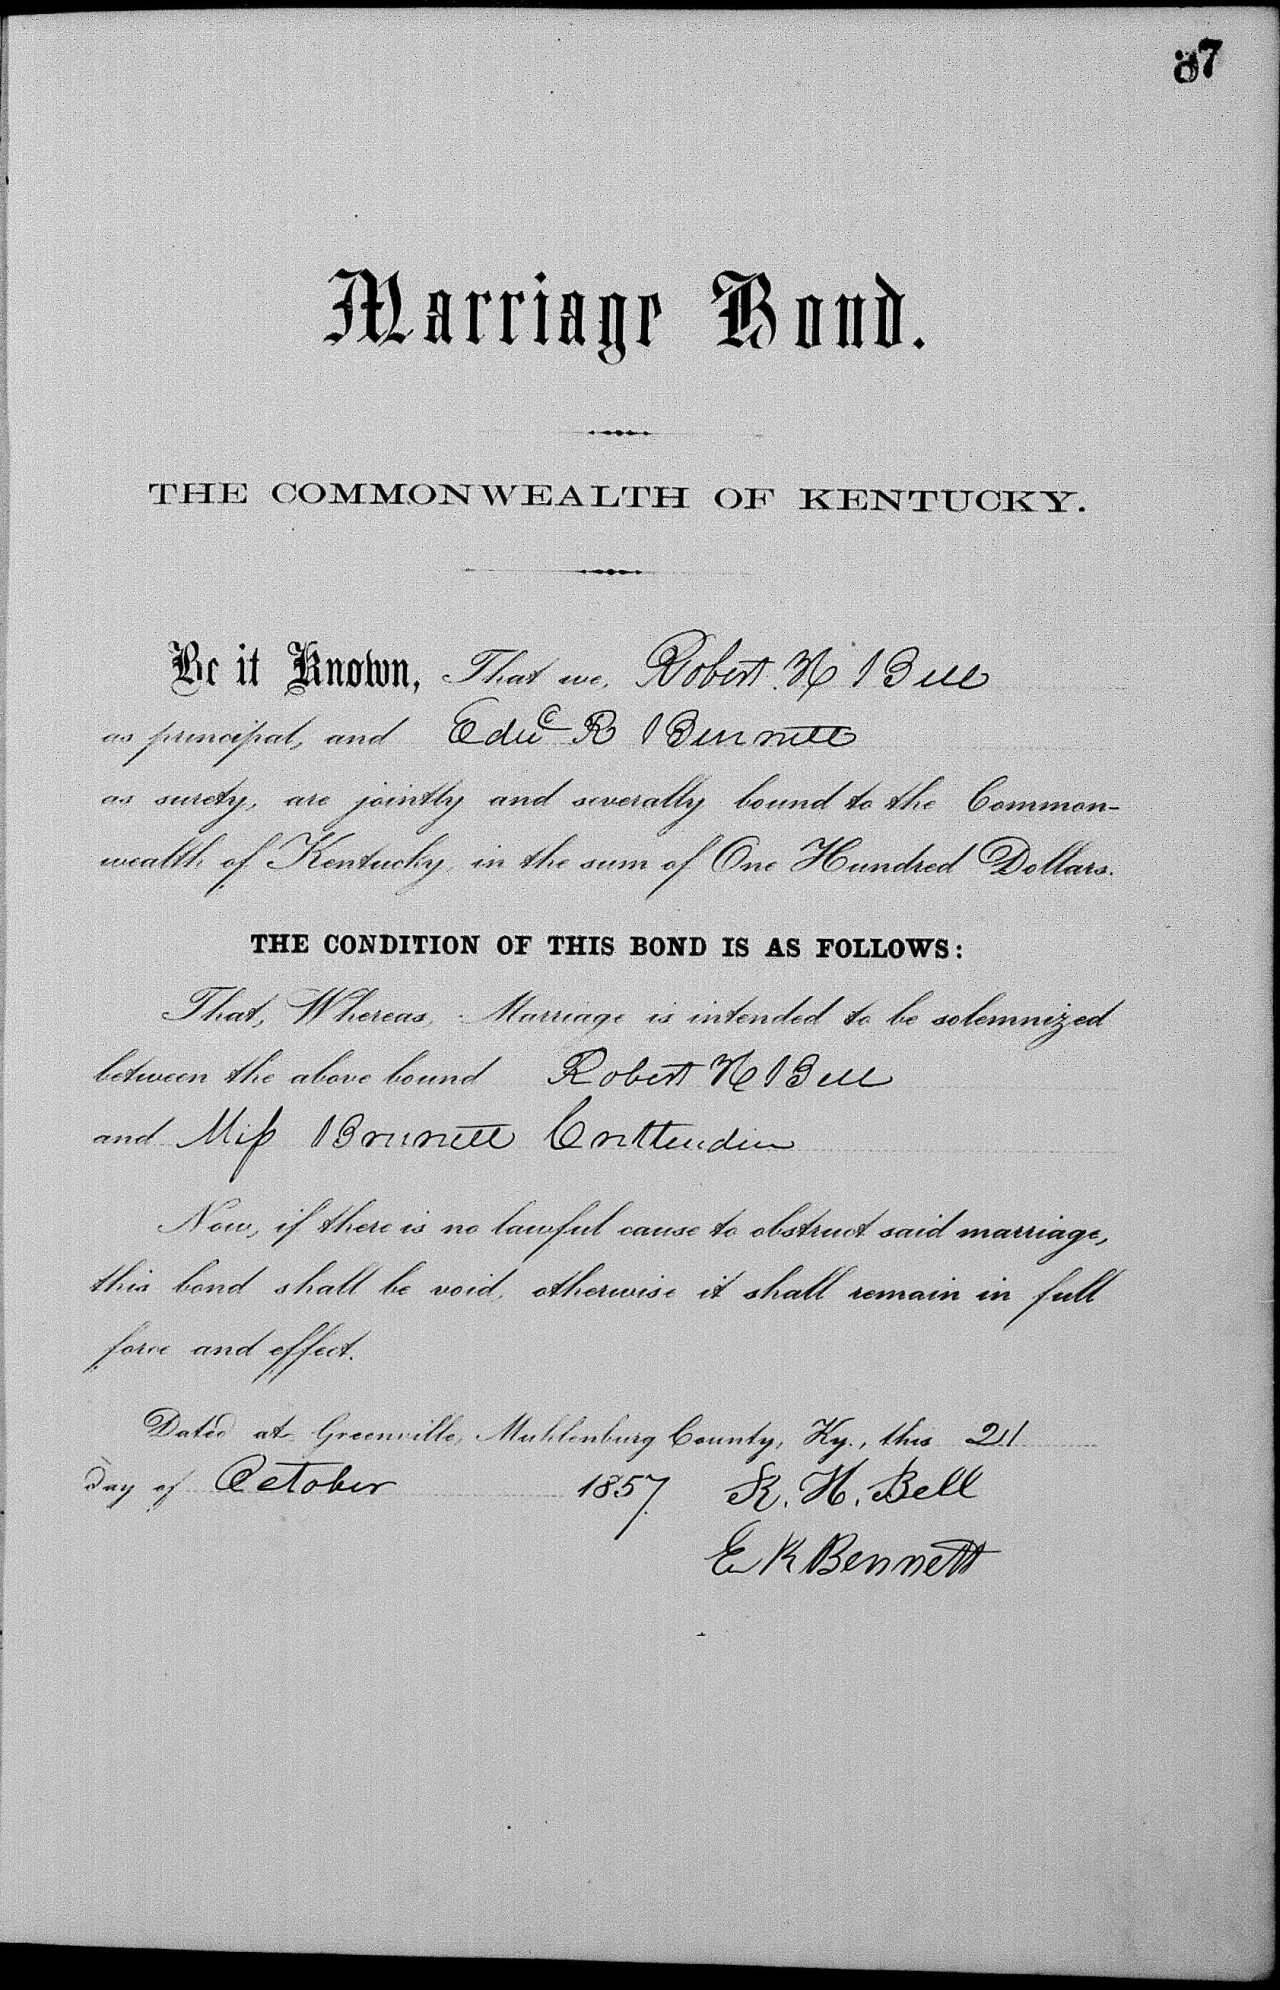 87
Marriage Bond.
THE COMMONWEALTH OF KENTUCKY.
Be it Known, That we, Robert H Bell
as principal, and Edwd R Bennett
as surety, are jointly and severally bound to the Common-
wealth of Kentucky, in the sum of One Hundred Dollars.
THE CONDITION OF THIS BOND IS AS FOLLOWS:
That, Whereas, Marriage is intended to be solemnized
between the above bound Robert H Bell
and Miss Brunett Crittenden
Now, if there is no lawful cause to obstruct said marriage,
this bond shall be void, otherwise it shall remain in full
force and effect.
Dated at Greenville, Muhlenburg County, Ky., this 21
day of October 1857. R. H. Bell
E R Bennett